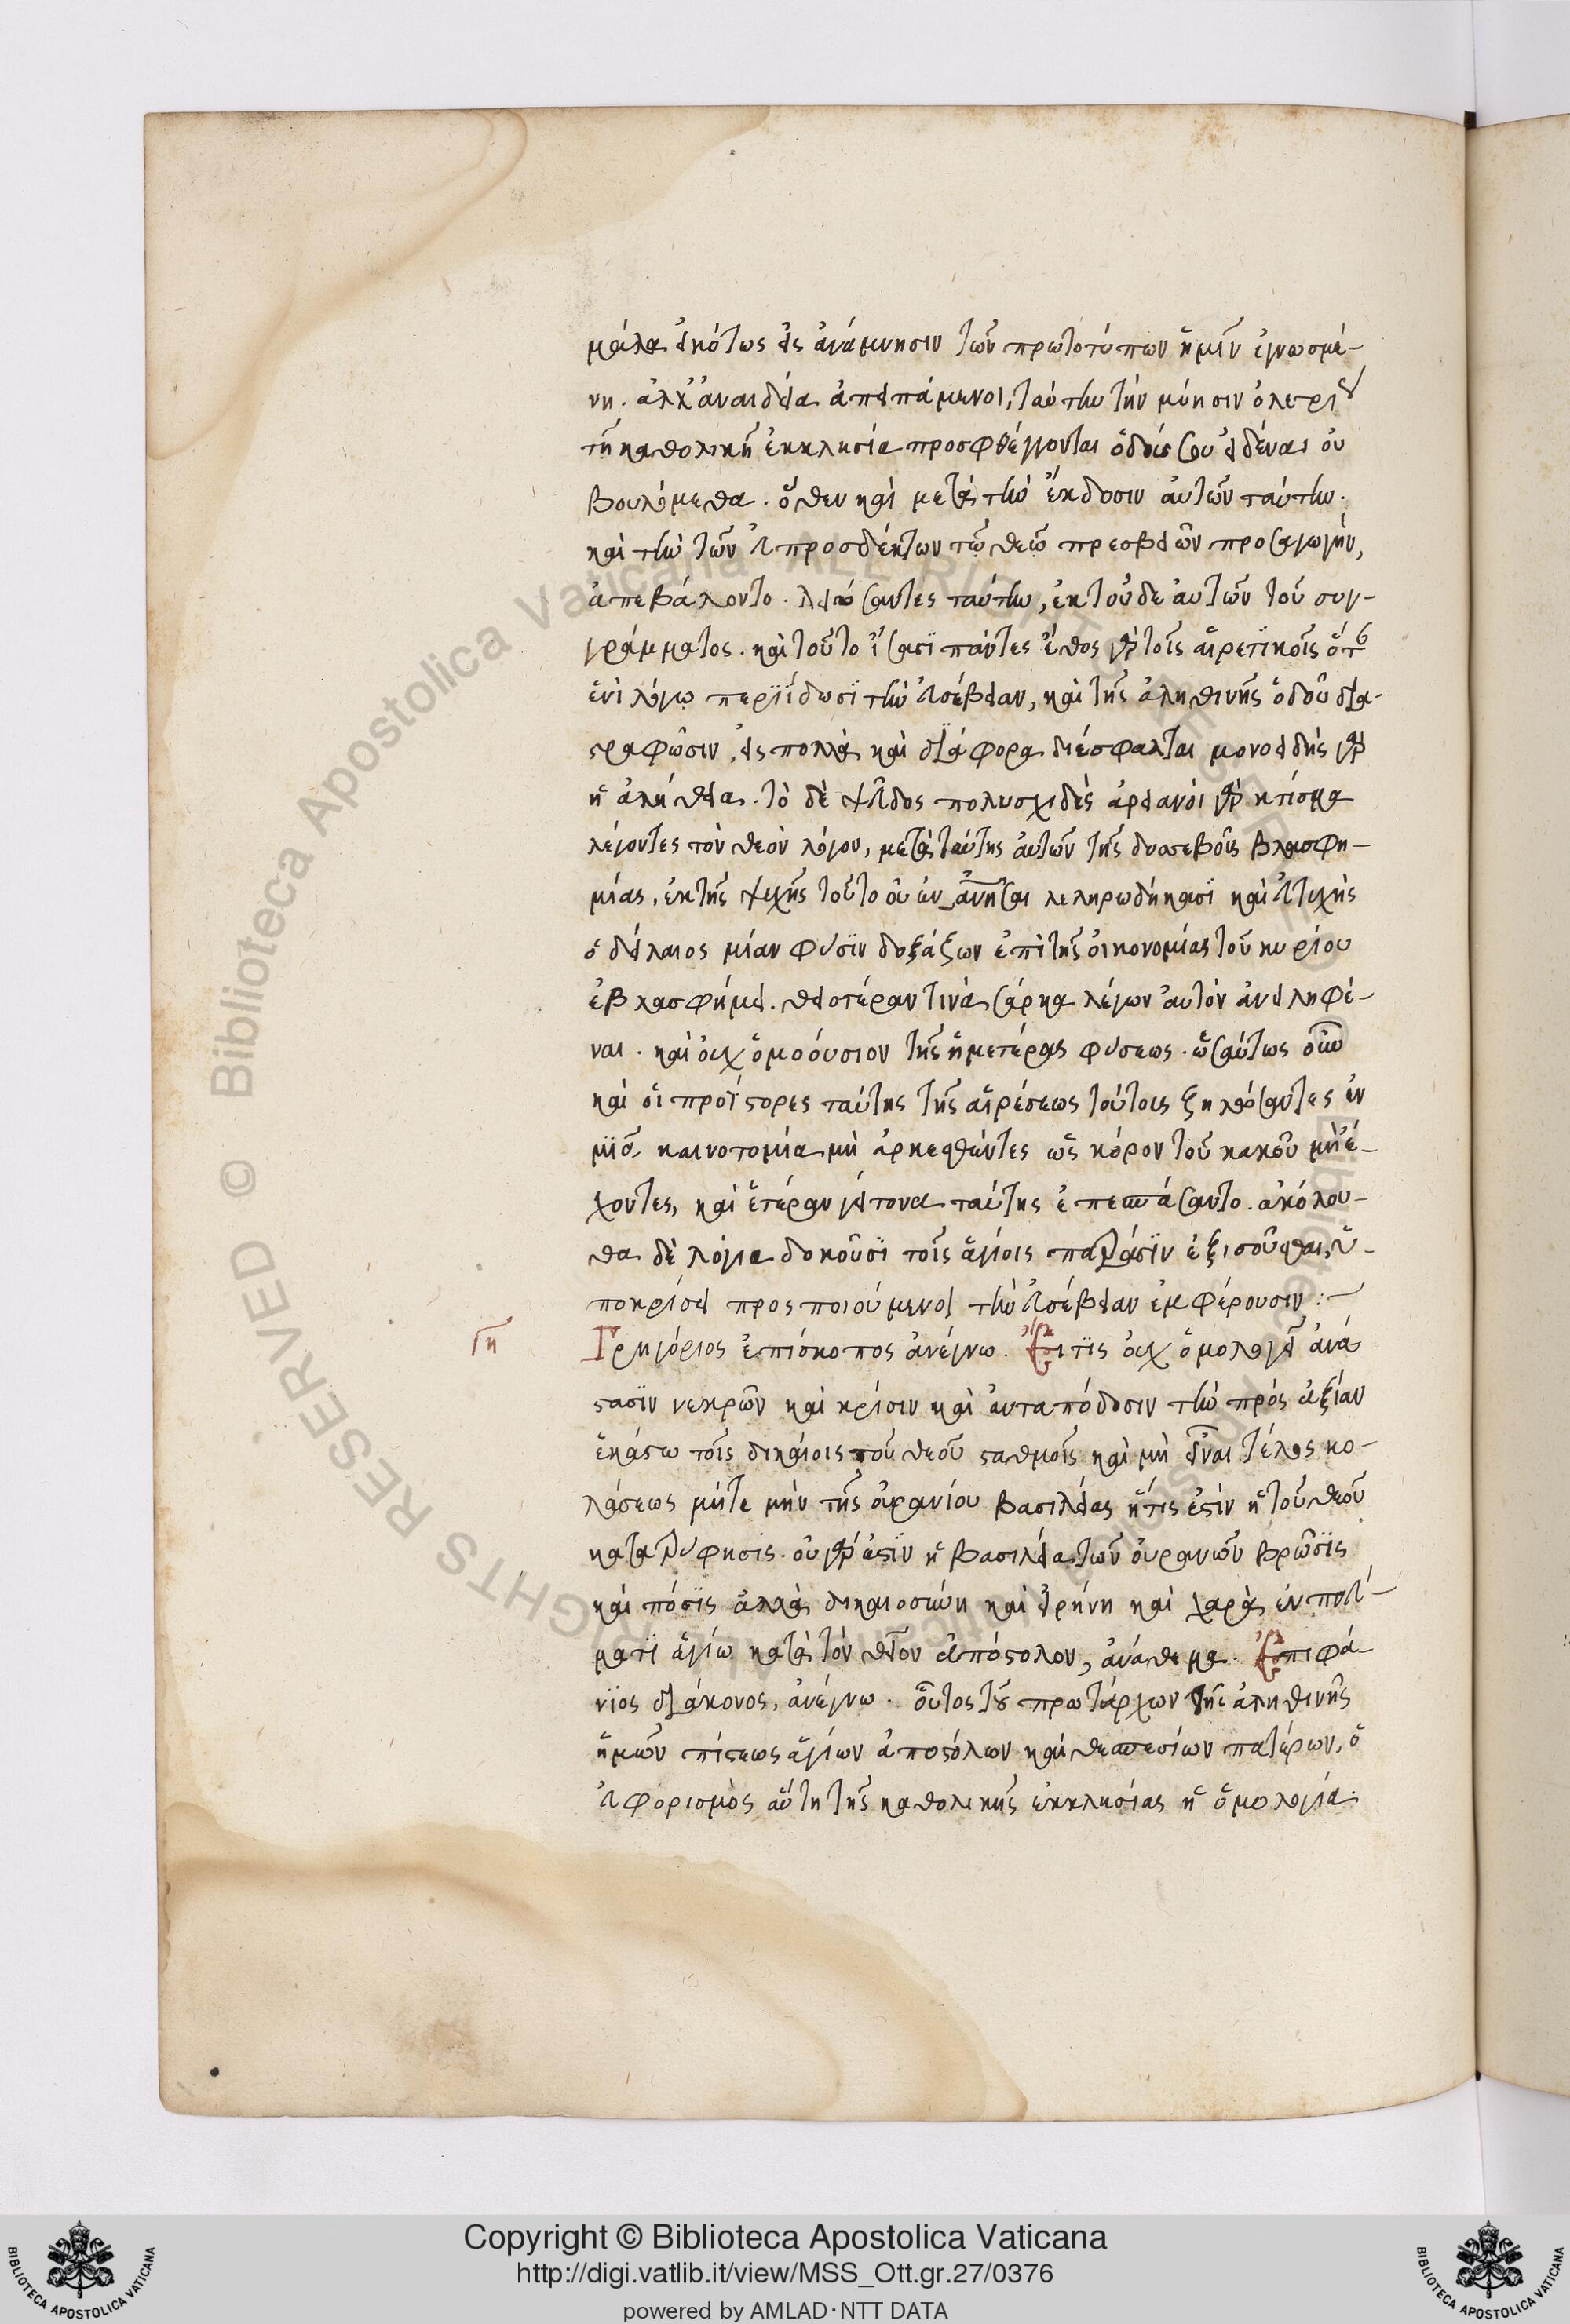 μάλα εἰκότως εἰς ἀνάμνησιν τῶν πρωτοτύπων ἡμῖν ἐγνωσμέ-
νη. ἀλλ' ἀναιδεία ἀπειπάμενοι, ταύτην τὴν μύησιν
τῆ καθολικῆ ἐκκλησία προσφθέγγονται ὁδούς σου εἰδέναι οὐ
βουλόμεθα. ὅθεν καὶ μετὰ τὴν ἔκδοσιν αὐτῶν ταύτην.
καὶ τὴν τῶν εὐπροσδέκτων τῶ θεῶ πρεσβειῶν προσαγωγήν,
ἀπεβάλοντο. λειώσαντες ταύτην, ἐκ τοῦδε αὐτῶν τοῦ συγ-
γράμματος. καὶ τοῦτο ἴσασϊ πάντες ἔθος γὰρ τοῖς αἱρετϊκοῖς ὅτε
ἑνὶ λόγω περϊΐδωσϊ τὴν εὐσέβειαν, καὶ τῆς ἀληθινῆς ὁδοῦ δια-
στραφῶσιν, εἰς πολλὰ καὶ δϊάφορα διέσφαλται μονοειδὴς γὰρ
ἡ ἀλήθεια. τὸ δὲ ψεῦδος πολυσχιδὲς ἀρειανοὶ γὰρ κτίσμα
λέγοντες τὸν θεὸν λόγον, μετὰ ταύτης αὐτῶν τῆς δυσεβοῦς βλασφη-
μίας. ἐκ τῆς ψυχῆς τοῦτο οὐκ ἀνῆφθαι ληρωδήκασϊ καὶ εὐτυχὴς
ὁ δείλαιος μίαν φύσϊν δοξάζων ἐπὶ τῆς οἰκονομίας τοῦ κυρίου
ἐβλασφήμει. θειοτέραν τινὰ σάρκα λέγων αὐτὸν ἀνειληφέ-
ναι. καὶ οὐχ ὁμοούσιον τῆς ἡμετέρας φύσεως. ὡσαύτως οὖν
καὶ οἱ προΐστορες ταύτης τῆς αἱρέσεως τούτοις ζηλώσαντες ἐν
μϊᾶ καινοτομία μὴ ἀρκεσθέντες ὡς κόρον τοῦ κακοῦ μὴ ἔ-
χοντες, καὶ ἑτέραν γείτονα ταύτης ἐπεσπάσαντο. ἀκόλου-
θα δὲ λόγια δοκοῦσϊ τοῖς ἁγίοις πατράσϊν ἐξισοῦσθαι, ὑ-
ποκρίσει προσποιούμενοι τὴν εὐσέβειαν ἐμφέρουσιν :-
ιη Γρηγόριος ἐπίσκοπος ἀνέγνω. Εἴ τϊς οὐχ ὁμολογεῖ ἀνά
στασϊν νεκρῶν καὶ κρίσιν καὶ ἀνταπόδοσιν τὴν πρὸς ἀξίαν
ἑκάστω τοῖς δικαίοις τοῦ θεοῦ σταθμοῖς καὶ μὴ εἶναι τέλος κο-
λάσεως μήτε μὴν τῆς οὐρανίου βασιλείας ἥτις ἐστὶν ἡ τοῦ θεοῦ
κατατρύφησϊς. οὐ γάρ ἐστϊν ἡ βασιλεία τῶν οὐρανῶν βρῶσϊς
καὶ πόσϊς ἀλλὰ δικαιοσύνη καὶ εἰρήνη καὶ χαρὰ ἐν πνεύ-
ματϊ ἁγίω κατὰ τὸν θεῖον ἀπόστολον, ἀνάθεμα. Ἐπιφά-
νϊος δϊάκονος, ἀνέγνω. οὗτος τῶν πρωτάρχων τῆς ἀληθινῆς
ἡμῶν πίστεως ἁγίων ἀποστόλων καὶ θεσπεσίων πατέρων, ὁ
ἀφορισμὸς αὕτη τῆς καθολικῆς ἐκκλησίας ἡ ὁμολογία
© Biblioteca Apostolica Vaticana ALL RIGHTS RESERVED
Copyright © Biblioteca Apostolica Vaticana
http://digi.vatlib.it/view/MSS_Ott.gr.27/0376
powered by AMLAD·NTT DATA
BIBLIOTECA APOSTOLICA VATICANA
BIBLIOTECA APOSTOLICA VATICANA